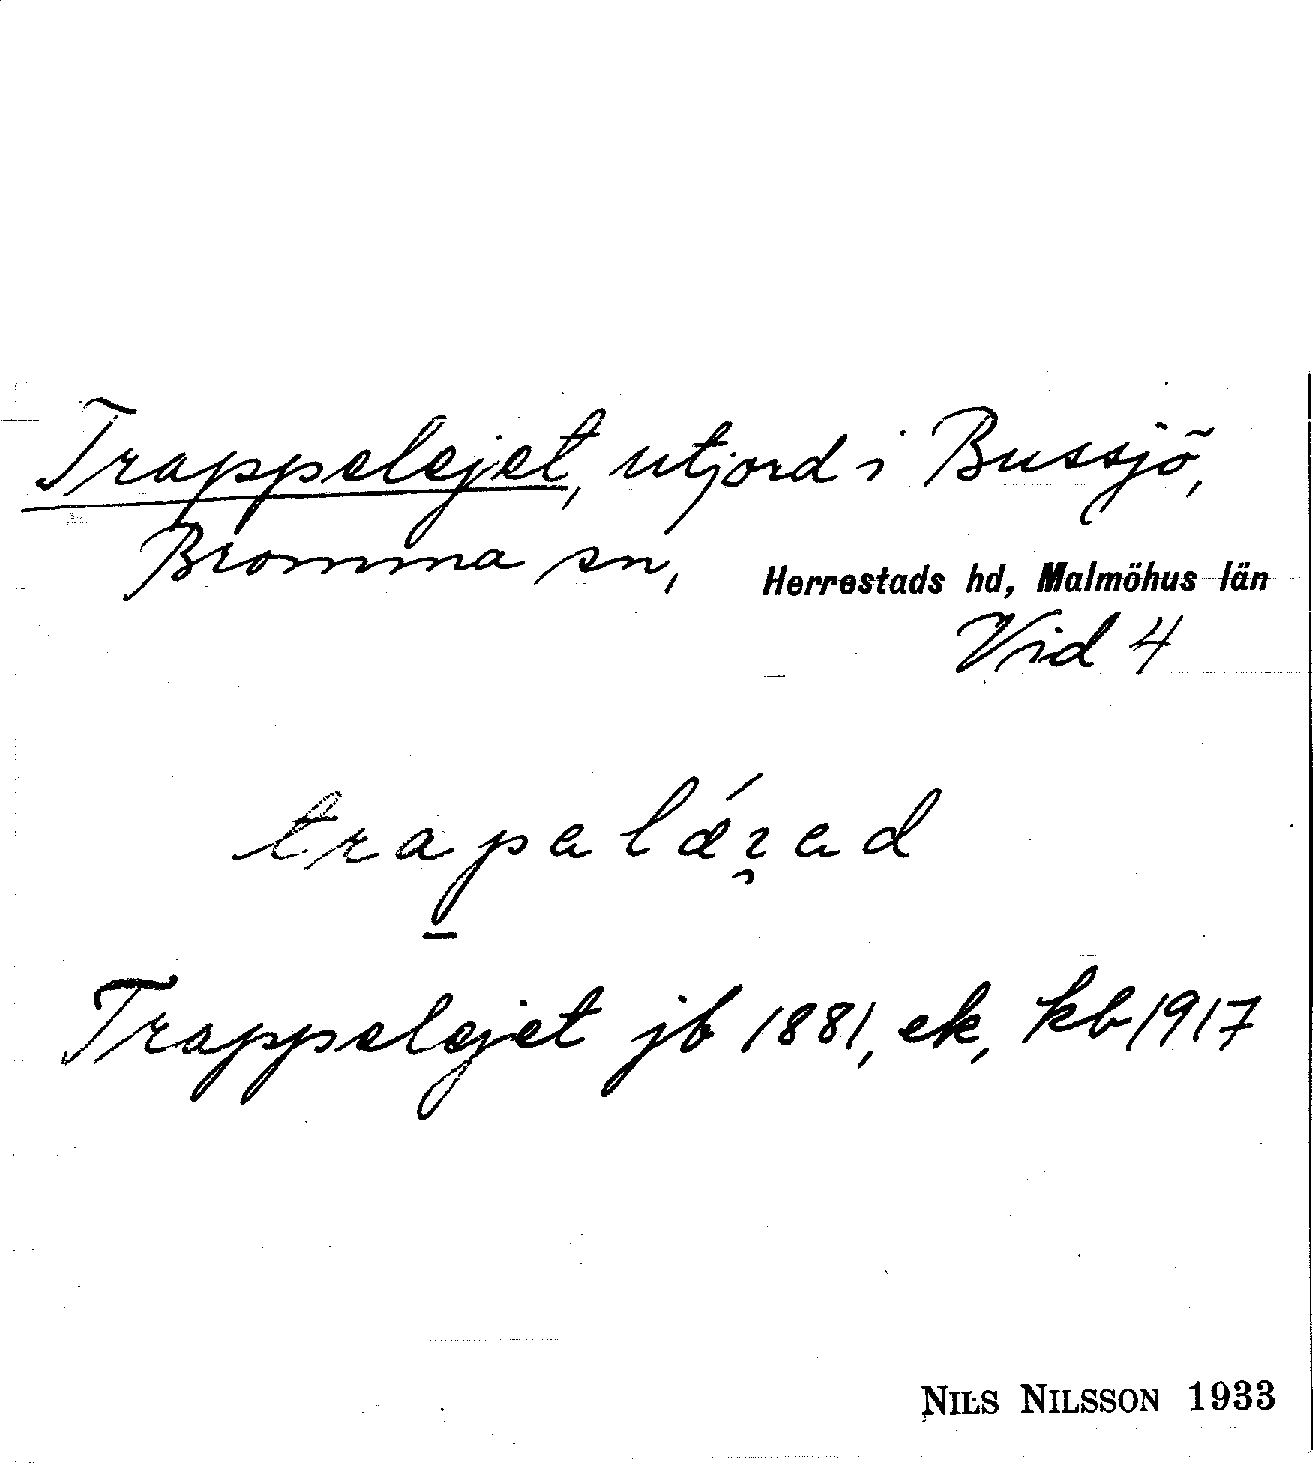 Trappelejet, utjord i Bussjö,
Bromma sn, Herrestads hd, Malmöhus län
Vid 4
Trappelejet jb 1881, ek, kb 1917
NILS NILSSON 1933